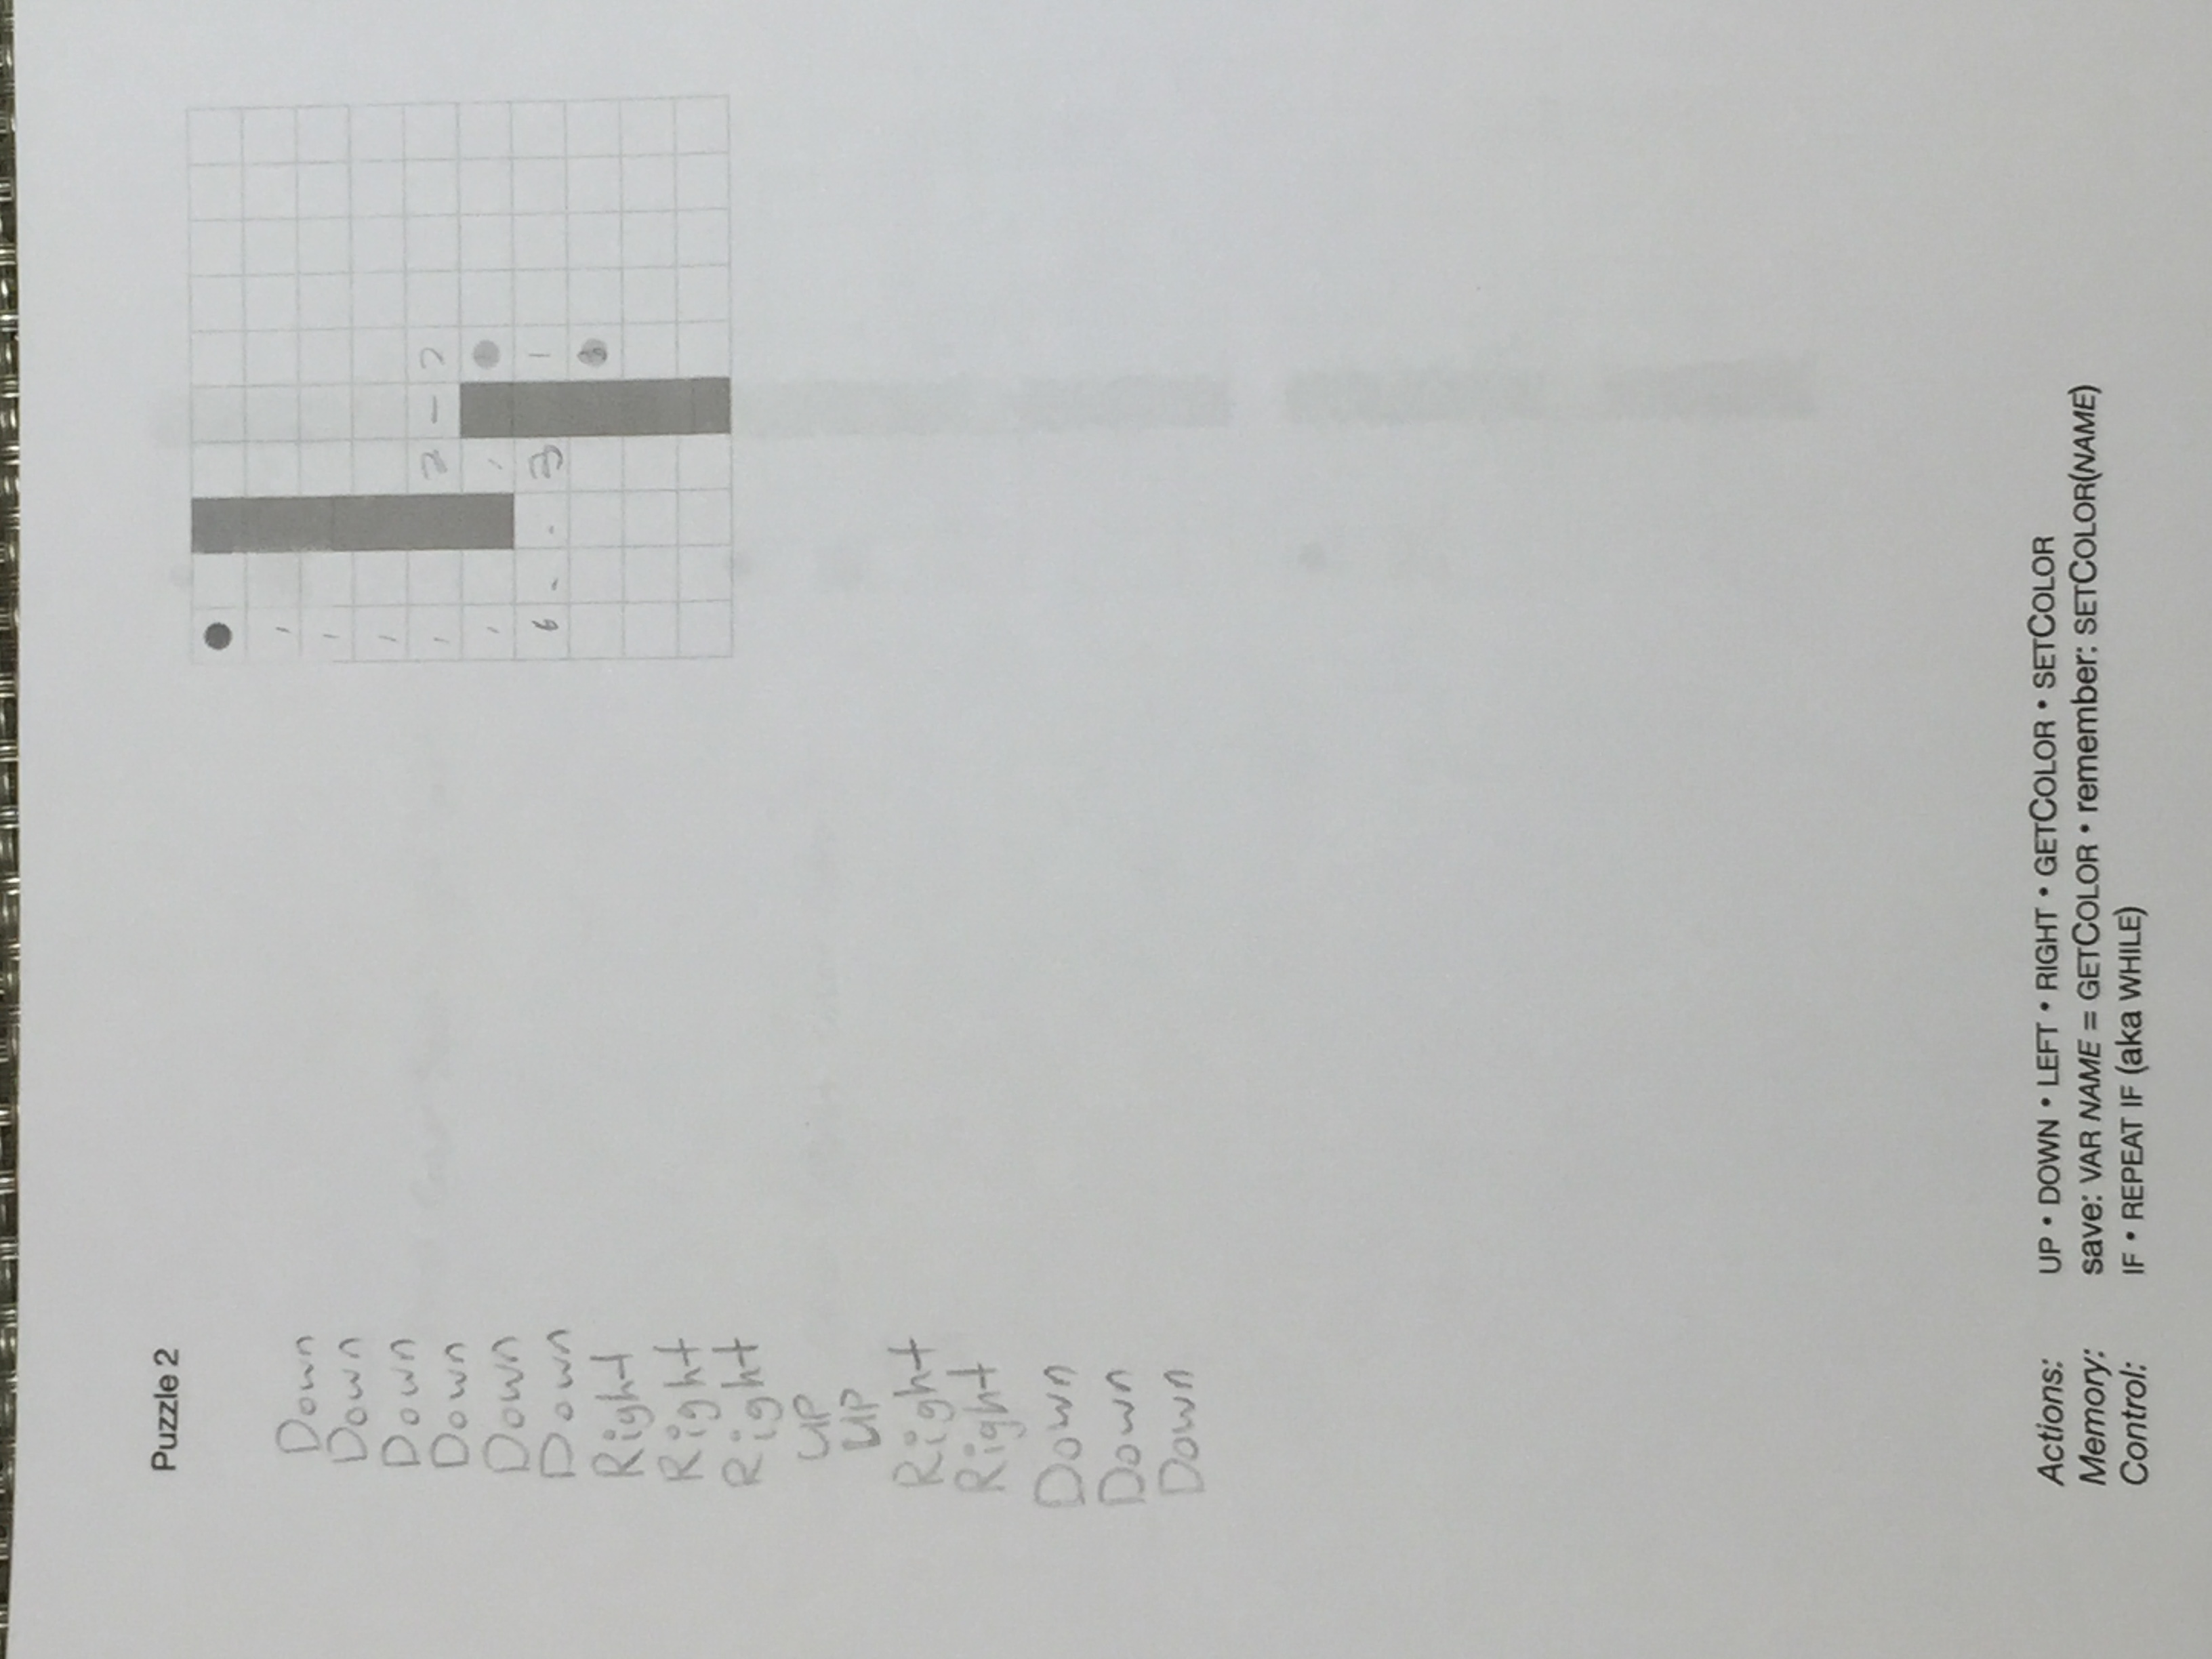 Puzzle 2
Down
Down
Down
Down
Down
Down
Right
Right
Right
UP
UP
Right
Right
Down
Down
Down
2 –
6 - - 3
1
Actions: UP • DOWN • LEFT • RIGHT • GETCOLOR • SETCOLOR
Memory: save: VAR NAME = GETCOLOR • remember: SETCOLOR(NAME)
Control: IF • REPEAT IF (aka WHILE)